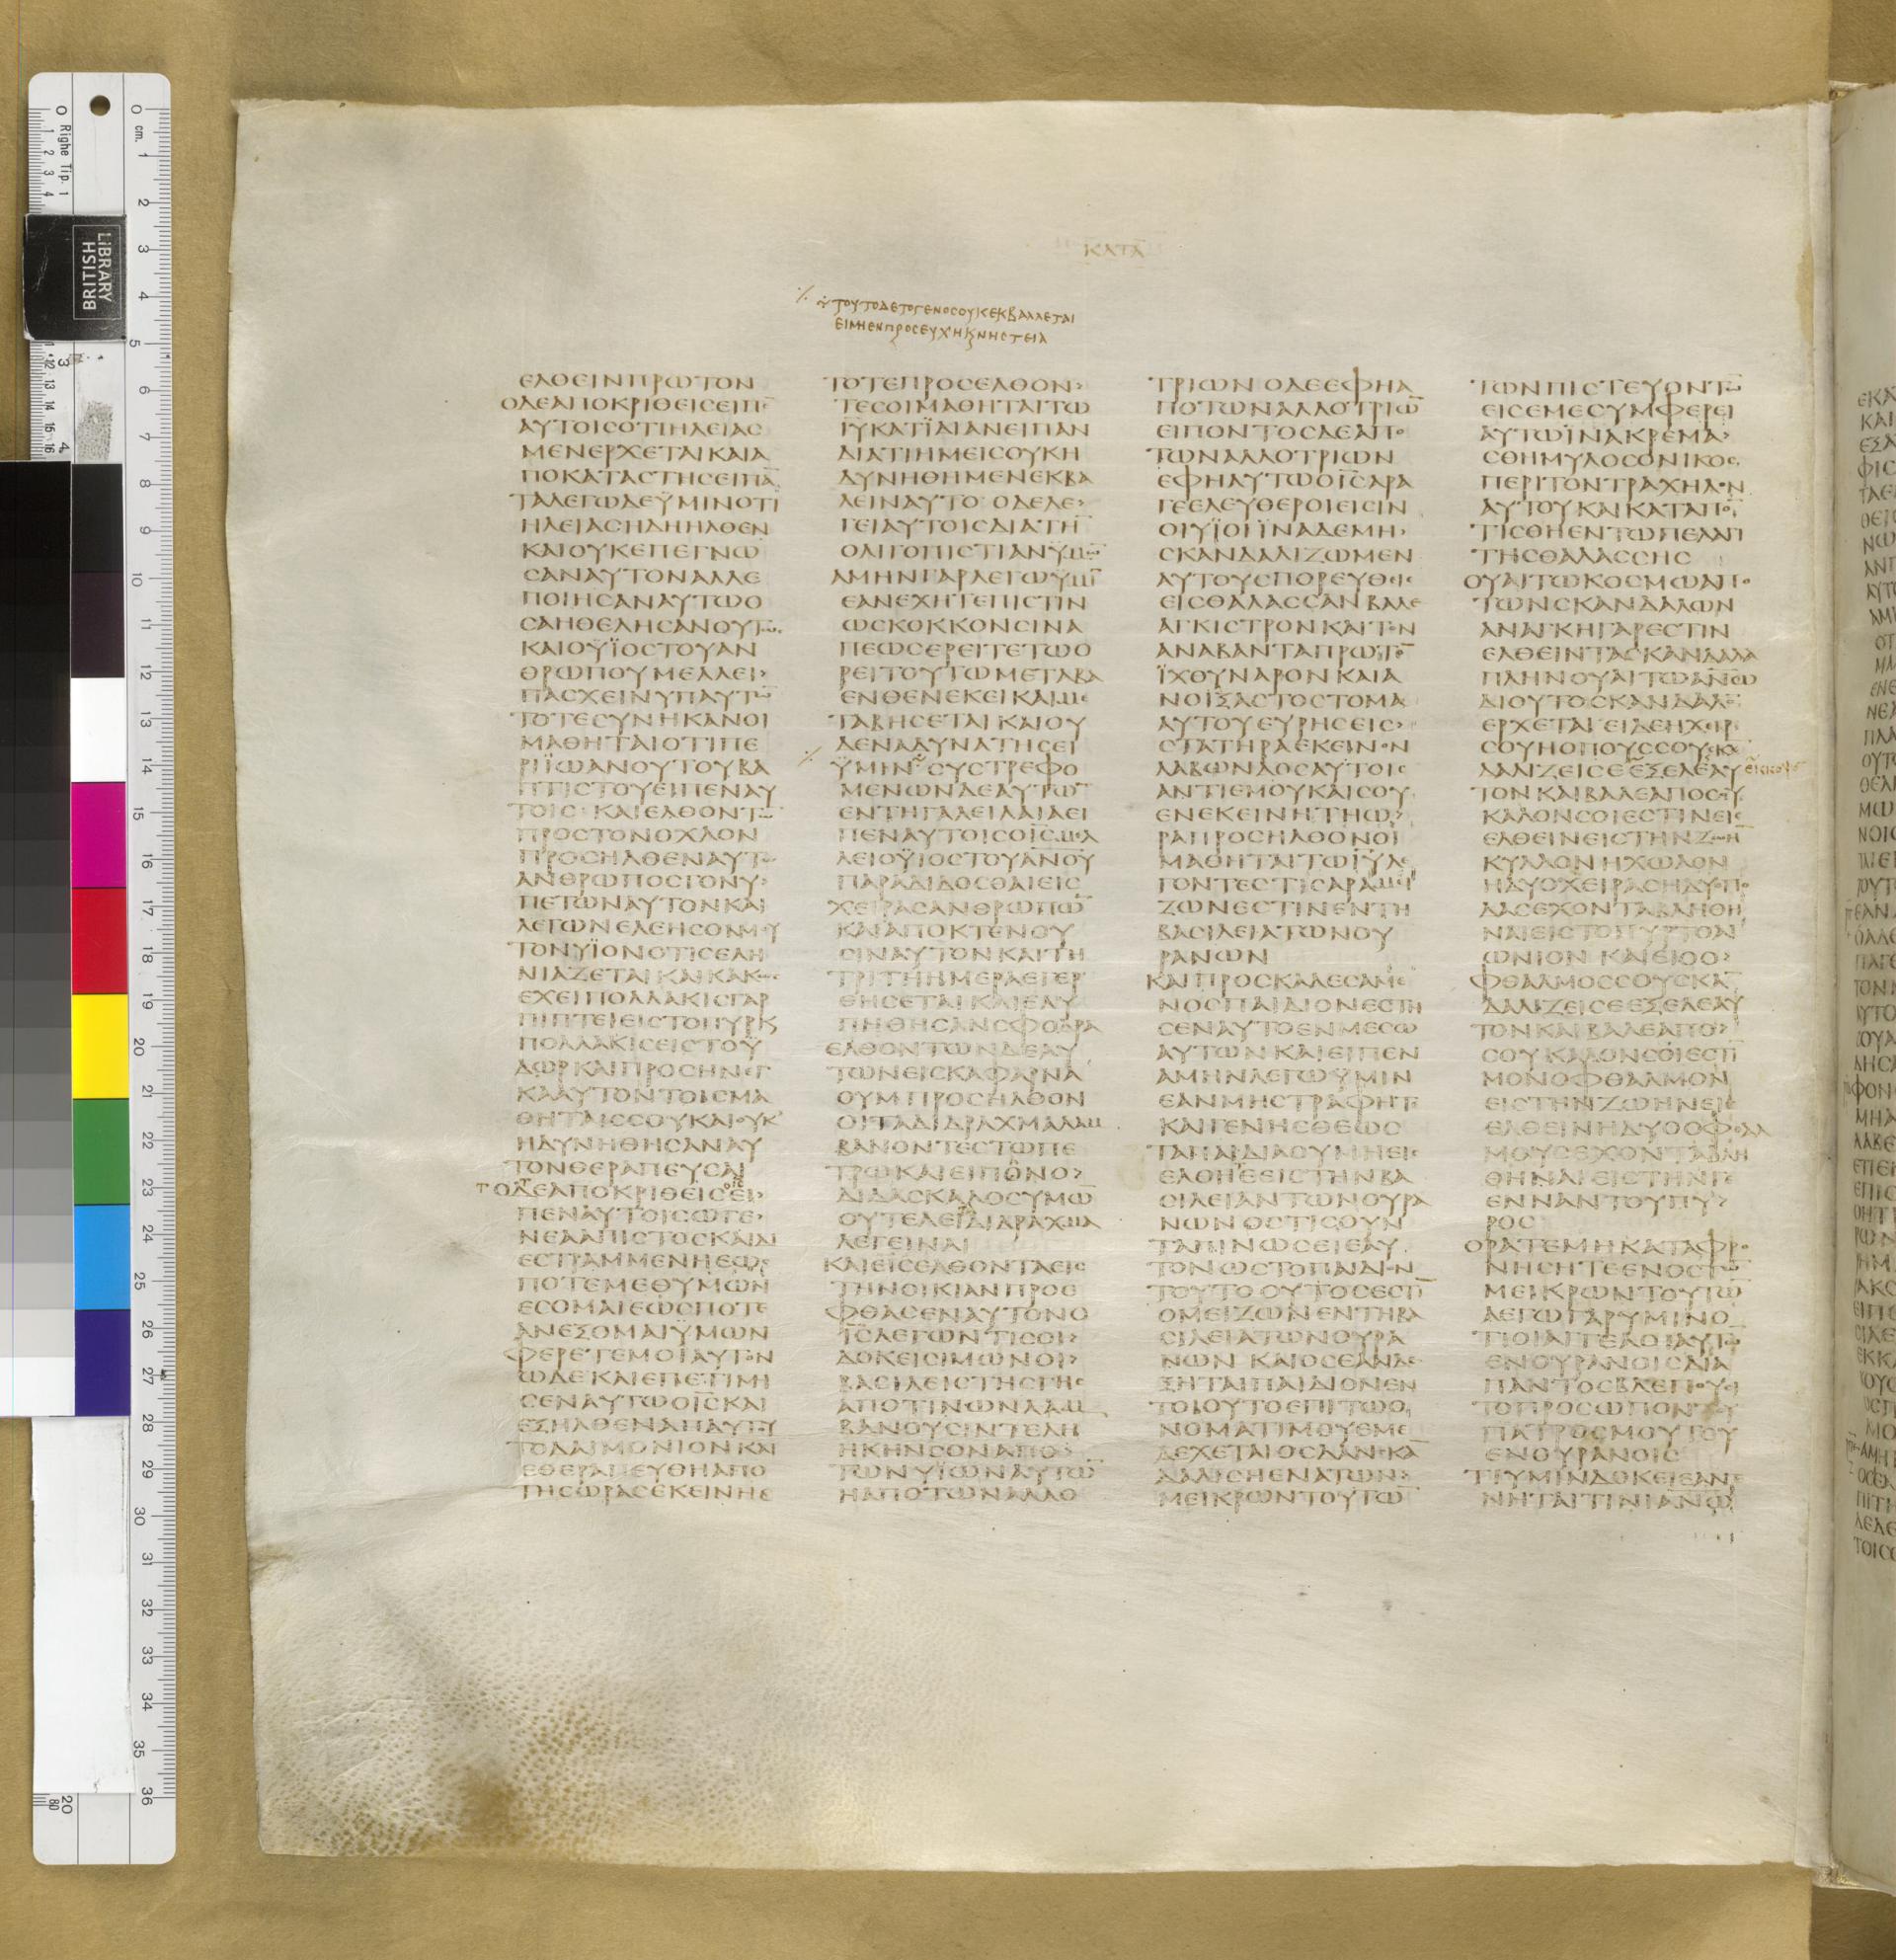 ΚΑΤΑ
ΤΟΥΤΟΔΕΤΟΓΕΝΟCΟΥΚΕΚΒΑΛΛΕΤΑΙ
ΕΙΜΗΕΝΠΡΟCΕΥΧΗΚϚΝΗCΤΕΙΑ
ΕΛΘΕΙΝΠΡΩΤΟΝ
ΟΔΕΑΠΟΚΡΙΘΕΙCΕΙΠΕ̅
ΑΥΤΟΙCΟΤΙΗΛΕΙΑC
ΜΕΝΕΡΧΕΤΑΙΚΑΙΑ
ΠΟΚΑΤΑCΤΗCΕΙΠΑ̅
ΤΑΛΕΓΩΔΕΫΜΙΝΟΤΙ
ΗΛΕΙΑCΗΔΗΗΛΘΕΝ
ΚΑΙΟΥΚΕΠΕΓΝΩ
CΑΝΑΥΤΟΝΑΛΛΕ
ΠΟΙΗCΑΝΑΥΤΩΟ
CΑΗΘΕΛΗCΑΝΟΥΤΩC
ΚΑΙΟΫΪΟCΤΟΥΑΝ
ΘΡΩΠΟΥΜΕΛΛΕΙ>
ΠΑCΧΕΙΝΥΠΑΥΤΩ̅
ΤΟΤΕCΥΝΗΚΑΝΟΙ
ΜΑΘΗΤΑΙΟΤΙΠΕ
ΡΙΪΩΑΝΟΥΤΟΥΒΑ
ΠΤΙCΤΟΥΕΙΠΕΝΑΥ
ΤΟΙC·ΚΑΙΕΛΘΟΝΤΩ̅
ΠΡΟCΤΟΝΟΧΛΟΝ
ΠΡΟCΗΛΘΕΝΑΥΤΩ
ΑΝΘΡΩΠΟCΓΟΝΥ>
ΠΕΤΩΝΑΥΤΟΝΚΑΙ
ΛΕΓΩΝΕΛΕΗCΟΝΜΟΥ
ΤΟΝΥΪΟΝΟΤΙCΕΛΗ
ΝΙΑΖΕΤΑΙΚΑΙΚΑΚΩC
ΕΧΕΙΠΟΛΛΑΚΙCΓΑΡ
ΠΙΠΤΕΙΕΙCΤΟΠΥΡΚϚ
ΠΟΛΛΑΚΙCΕΙCΤΟΫ
ΔΩΡΚΑΙΠΡΟCΗΝΕΓ
ΚΑΑΥΤΟΝΤΟΙCΜΑ
ΘΗΤΑΙCCΟΥΚΑΙΟΥΚ
ΗΔΥΝΗΘΗCΑΝΑΥ
ΤΟΝΘΕΡΑΠΕΥCΑΙ
ΤΟΔΕΑΠΟΚΡΙΘΕΙCΕΙ>
ΠΕΝΑΥΤΟΙCΩΓΕ>
ΝΕΑΑΠΙCΤΟCΚΑΙΔΙ
ΕCΤΡΑΜΜΕΝΗΕΩC
ΠΟΤΕΜΕΘΥΜΩΝ
ΕCΟΜΑΙΕΩCΠΟΤΕ
ΑΝΕΞΟΜΑΙΫΜΩΝ
ΦΕΡΕΤΕΜΟΙΑΥΤΟΝ
ΩΔΕΚΑΙΕΠΕΤΙΜΗ
CΕΝΑΥΤΩΟΙ̅C̅ΚΑΙ
ΕΞΗΛΘΕΝΑΠΑΥΤΟΥ
ΤΟΔΑΙΜΟΝΙΟΝΚΑΙ
ΕΘΕΡΑΠΕΥΘΗΑΠΟ
ΤΗCΩΡΑCΕΚΕΙΝΗC
ΤΟΤΕΠΡΟCΕΛΘΟΝ>
ΤΕCΟΙΜΑΘΗΤΑΙΤΩ
Ι̅Υ̅ΚΑΤΪΔΙΑΝΕΙΠΑΝ
ΔΙΑΤΙΗΜΕΙCΟΥΚΗ
ΔΥΝΗΘΗΜΕΝΕΚΒΑ
ΛΕΙΝΑΥΤΟ·ΟΔΕΛΕ>
ΓΕΙΑΥΤΟΙCΔΙΑΤΗ̅
ΟΛΙΓΟΠΙCΤΙΑΝΫΜΩ̅
ΑΜΗΝΓΑΡΛΕΓΩΫΜΙ̅
ΕΑΝΕΧΗΤΕΠΙCΤΙΝ
ΩCΚΟΚΚΟΝCΙΝΑ
ΠΕΩCΕΡΕΙΤΕΤΩΟ
ΡΕΙΤΟΥΤΩΜΕΤΑΒΑ
ΕΝΘΕΝΕΚΕΙΚΑΙΜΕ
ΤΑΒΗCΕΤΑΙΚΑΙΟΥ
ΔΕΝΑΔΥΝΑΤΗCΕΙ
ΫΜΙΝCΥCΤΡΕΦΟ
ΜΕΝΩΝΔΕΑΥΤΩ̅
ΕΝΤΗΓΑΛΕΙΛΑΙΑΕΙ
ΠΕΝΑΥΤΟΙCΟΙ̅C̅ΜΕΛ
ΛΕΙΟΫΙΟCΤΟΥΑ̅Ν̅Ο̅Υ̅
ΠΑΡΑΔΙΔΟCΘΑΙΕΙC
ΧΕΙΡΑCΑΝΘΡΩΠΩ̅
ΚΑΙΑΠΟΚΤΕΝΟΥ
CΙΝΑΥΤΟΝΚΑΙΤΗ
ΤΡΙΤΗΗΜΕΡΑΕΓΕΡ
ΘΗCΕΤΑΙΚΑΙΕΛΥ
ΠΗΘΗCΑΝCΦΟΔΡΑ
ΕΛΘΟΝΤΩΝΔΕΑΥ
ΤΩΝΕΙCΚΑΦΑΡΝΑ
ΟΥΜΠΡΟCΗΛΘΟΝ
ΟΙΤΑΔΙΔΡΑΧΜΑΛΑΜ
ΒΑΝΟΝΤΕCΤΩΠΕ
ΤΡΩΚΑΙΕΙΠΟΝΟ>
ΔΙΔΑCΚΑΛΟCΥΜΩ̅
ΟΥΤΕΛΕΙΔΙΔΡΑΧΜΑ
ΛΕΓΕΙΝΑΙ
ΚΑΙΕΙCΕΛΘΟΝΤΑΕΙC
ΤΗΝΟΙΚΙΑΝΠΡΟΕ
ΦΘΑCΕΝΑΥΤΟΝΟ
Ι̅C̅ΛΕΓΩΝΤΙCΟΙ>
ΔΟΚΕΙCΙΜΩΝΟΙ>
ΒΑCΙΛΕΙCΤΗCΓΗC
ΑΠΟΤΙΝΩΝΛΑΜ
ΒΑΝΟΥCΙΝΤΕΛΗ
ΗΚΗΝCΟΝΑΠΟ>
ΤΩΝΥΪΩΝΑΥΤΩ̅
ΗΑΠΟΤΩΝΑΛΛΟ
ΤΡΙΩΝΟΔΕΕΦΗΑ
ΠΟΤΩΝΑΛΛΟΤΡΙΩ̅
ΕΙΠΟΝΤΟCΔΕΑΠΟ
ΤΩΝΑΛΛΟΤΡΙΩΝ
ΕΦΗΑΥΤΩΟΙ̅C̅ΑΡΑ
ΓΕΕΛΕΥΘΕΡΟΙΕΙCΙΝ
ΟΙΥΪΟΙΪΝΑΔΕΜΗ>
CΚΑΝΔΑΛΙΖΩΜΕΝ
ΑΥΤΟΥCΠΟΡΕΥΘΕΙC
ΕΙCΘΑΛΑCCΑΝΒΑΛΕ
ΑΓΚΙCΤΡΟΝΚΑΙΤΟΝ
ΑΝΑΒΑΝΤΑΠΡΩΤΟ̅
ΪΧΘΥΝΑΡΟΝΚΑΙΑ
ΝΟΙΞΑCΤΟCΤΟΜΑ
ΑΥΤΟΥΕΥΡΗCΕΙC>
CΤΑΤΗΡΑΕΚΕΙΝΟΝ
ΛΑΒΩΝΔΟCΑΥΤΟΙC
ΑΝΤΙΕΜΟΥΚΑΙCΟΥ
ΕΝΕΚΕΙΝΗΤΗΩ>
ΡΑΠΡΟCΗΛΘΟΝΟΙ
ΜΑΘΗΤΑΙΤΩΙ̅Υ̅ΛΕ
ΓΟΝΤΕCΤΙCΑΡΑΜΕΙ
ΖΩΝΕCΤΙΝΕΝΤΗ
ΒΑCΙΛΕΙΑΤΩΝΟΥ
ΡΑΝΩΝ
ΚΑΙΠΡΟCΚΑΛΕCΑΜΕ
ΝΟCΠΑΙΔΙΟΝΕCΤΗ
CΕΝΑΥΤΟΕΝΜΕCΩ
ΑΥΤΩΝΚΑΙΕΙΠΕΝ
ΑΜΗΝΛΕΓΩΫΜΙΝ
ΕΑΝΜΗCΤΡΑΦΗΤΕ
ΚΑΙΓΕΝΗCΘΕΩC
ΤΑΠΑΙΔΙΑΟΥΜΗΕΙC
ΕΛΘΗΤΕΕΙCΤΗΝΒΑ
CΙΛΕΙΑΝΤΩΝΟΥΡΑ
ΝΩΝΟCΤΙCΟΥΝ
ΤΑΠΙΝΩCΕΙΕΑΥ
ΤΟΝΩCΤΟΠΑΙΔΙΟΝ
ΤΟΥΤΟΟΥΤΟCΕCΤΙ̅
ΟΜΕΙΖΩΝΕΝΤΗΒΑ
CΙΛΕΙΑΤΩΝΟΥΡΑ
ΝΩΝΚΑΙΟCΕΑΝΔΕ
ΞΗΤΑΙΠΑΙΔΙΟΝΕΝ
ΤΟΙΟΥΤΟΕΠΙΤΩΟ
ΝΟΜΑΤΙΜΟΥΕΜΕ
ΔΕΧΕΤΑΙΟCΔΑΝCΚΑ̅
ΔΑΛΙCΗΕΝΑΤΩΝ>
ΜΕΙΚΡΩΝΤΟΥΤΩ̅
ΤΩΝΠΙCΤΕΥΟΝΤΩ̅
ΕΙCΕΜΕCΥΜΦΕΡΕΙ
ΑΥΤΩΪΝΑΚΡΕΜΑ>
CΘΗΜΥΛΟCΟΝΙΚΟC
ΠΕΡΙΤΟΝΤΡΑΧΗΛΟΝ
ΑΥΤΟΥΚΑΙΚΑΤΑΠΟ̅
ΤΙCΘΗΕΝΤΩΠΕΛΑΓΙ
ΤΗCΘΑΛΑCCΗC
ΟΥΑΙΤΩΚΟCΜΩΑΠΟ
ΤΩΝCΚΑΝΔΑΛΩΝ
ΑΝΑΓΚΗΓΑΡΕCΤΙΝ
ΕΛΘΕΙΝΤΑCΚΑΝΔΑΛΑ
ΠΛΗΝΟΥΑΙΤΩΑ̅Ν̅Ω̅
ΔΙΟΥΤΟCΚΑΝΔΑΛΟ̅
ΕΡΧΕΤΑΙΕΙΔΕΗΧΕΙΡ
CΟΥΗΟΠΟΥCCΟΥCΚΑ̅
ΔΑΛΙΖΕΙCΕΕΞΕΛΕΑΥ
ΤΟΝΚΑΙΒΑΛΕΑΠΟCΟΥ
ΚΑΛΟΝCΟΙΕCΤΙΝΕΙC
ΕΛΘΕΙΝΕΙCΤΗΝΖΩΗ̅
ΚΥΛΛΟΝΗΧΩΛΟΝ
ΗΔΥΟΧΕΙΡΑCΗΔΥΟΠΟ
ΔΑCΕΧΟΝΤΑΒΛΗΘΗ
ΝΑΙΕΙCΤΟΠΥΡΤΟΑΙ
ΩΝΙΟΝΚΑΙΕΙΟΟ>
ΦΘΑΛΜΟCCΟΥCΚΑ̅
ΔΑΛΙΖΕΙCΕΕΞΕΛΕΑΥ
ΤΟΝΚΑΙΒΑΛΕΑΠΟ>
CΟΥΚΑΛΟΝCΟΙΕCΤΙ̅
ΜΟΝΟΦΘΑΛΜΟΝ
ΕΙCΤΗΝΖΩΗΝΕΙC
ΕΛΘΕΙΝΗΔΥΟΟΦΘΑΛ
ΜΟΥCΕΧΟΝΤΑΒΛΗ
ΘΗΝΑΙΕΙCΤΗΝΓΕ
ΕΝΝΑΝΤΟΥΠΥ>
ΡΟC
ΟΡΑΤΕΜΗΚΑΤΑΦΡΟ
ΝΗCΗΤΕΕΝΟCΤΩ̅
ΜΕΙΚΡΩΝΤΟΥΤΩ̅
ΛΕΓΩΓΑΡΥΜΙΝΟ
ΤΙΟΙΑΓΓΕΛΟΙΑΥΤΩ̅
ΕΝΟΥΡΑΝΟΙCΔΙΑ
ΠΑΝΤΟCΒΛΕΠΟΥCΙ
ΤΟΠΡΟCΩΠΟΝΤΟΥ
ΠΑΤΡΟCΜΟΥΤΟΥ
ΕΝΟΥΡΑΝΟΙC
ΤΙΥΜΙΝΔΟΚΕΙΕΑΝΓΕ
ΝΗΤΑΙΤΙΝΙΑ̅Ν̅Ω̅